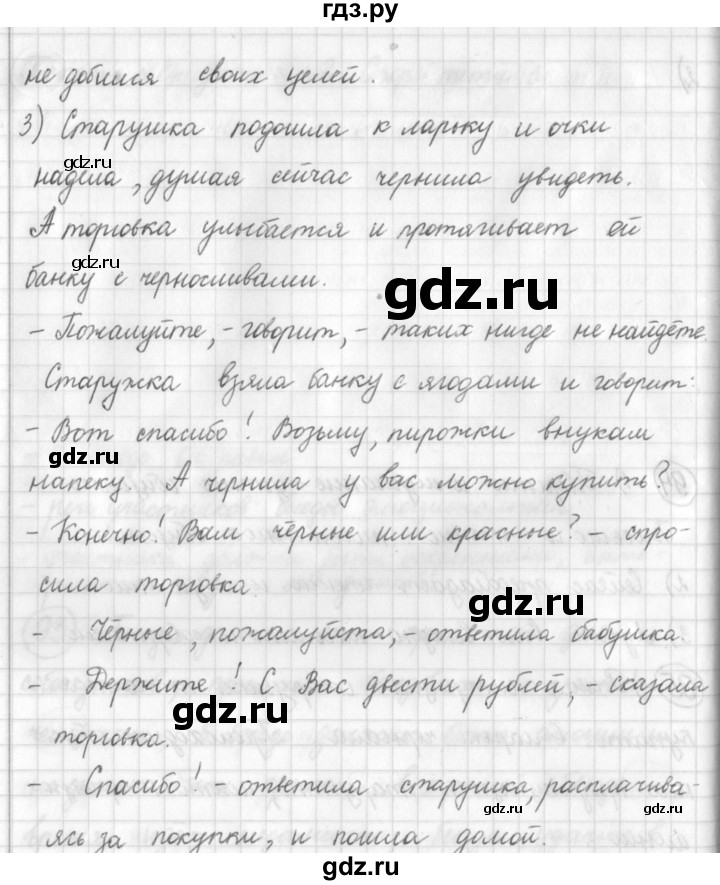 гдз.ру
не добился своих целей.
3) Старушка подошла к ларьку и очки
надела, думая сейчас чернила увидеть.
А торговка улыбается и протягивает ей
gdz.ru
банку с черносливами.
gdz.ru
- Пожалуйте, - говорит, - таких нигде не найдёте.
Старужка взяла банку с ягодами и говорит:
- Вот спасибо! Возьму, пирожки внукам
gdz.ru
напеку. А чернила у вас можно купить?
- Конечно! Вам чёрные или красные? - спро-
сила торговка.
gdz.ru
- Чёрные, пожалуйста, - ответила бабушка.
- Держите! С Вас двести рублей, - сказала
gdz.ru
торговка.
- Спасибо! - ответила старушка, расплачива-
gdz.ru
ясь за покупки, и пошла домой.
gdz.ru